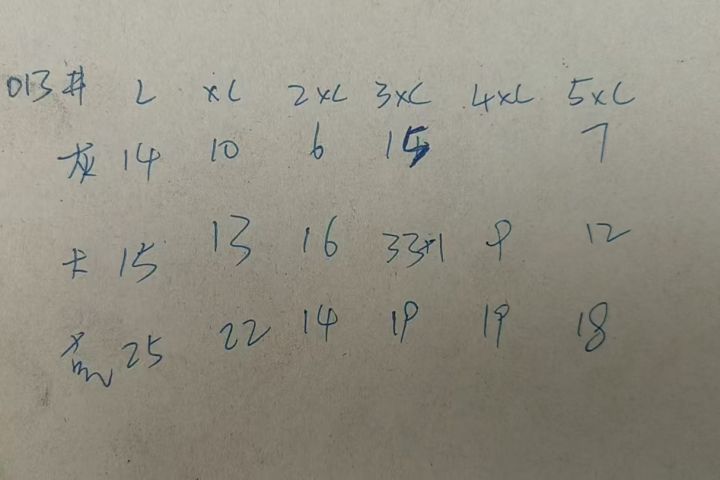 013# L XL 2XL 3XL 4XL 5XL
灰 14 10 6 15 7
卡 15 13 16 33+1 9 12
25 22 14 19 19 18